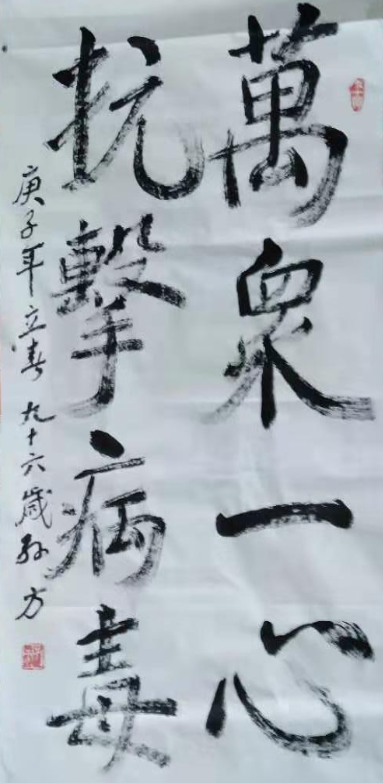 萬衆一心
抗擊病毒
庚子年立春九十六歲孙方